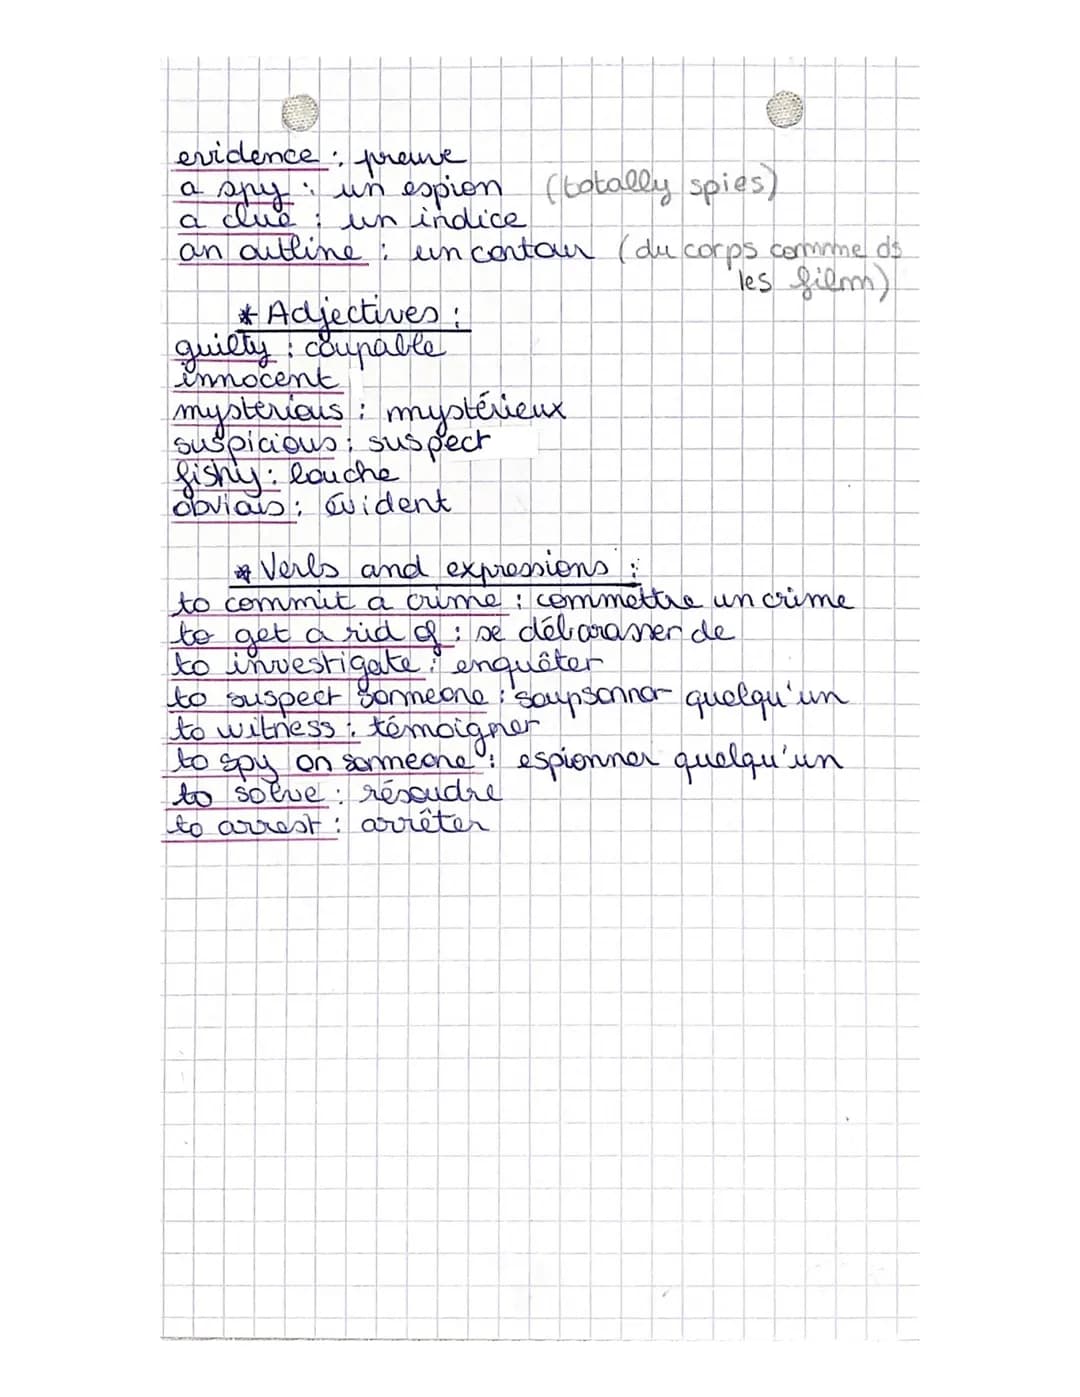 evidence : preuve
a spy : un espion (totally spies)
a clue : un indice
an outline : un contour (du corps comme ds
les film)
* Adjectives :
guilty : coupable
innocent
mysterious : mystérieux
suspicious : suspect
fishy : louche
obvious : évident
* Verbs and expressions :
to commit a crime : commettre un crime
to get a rid of : se débarasser de
to investigate : enquêter
to suspect someone : soupsonner quelqu'un
to witness : témoigner
to spy on someone : espionner quelqu'un
to solve : résoudre
to arrest : arrêter